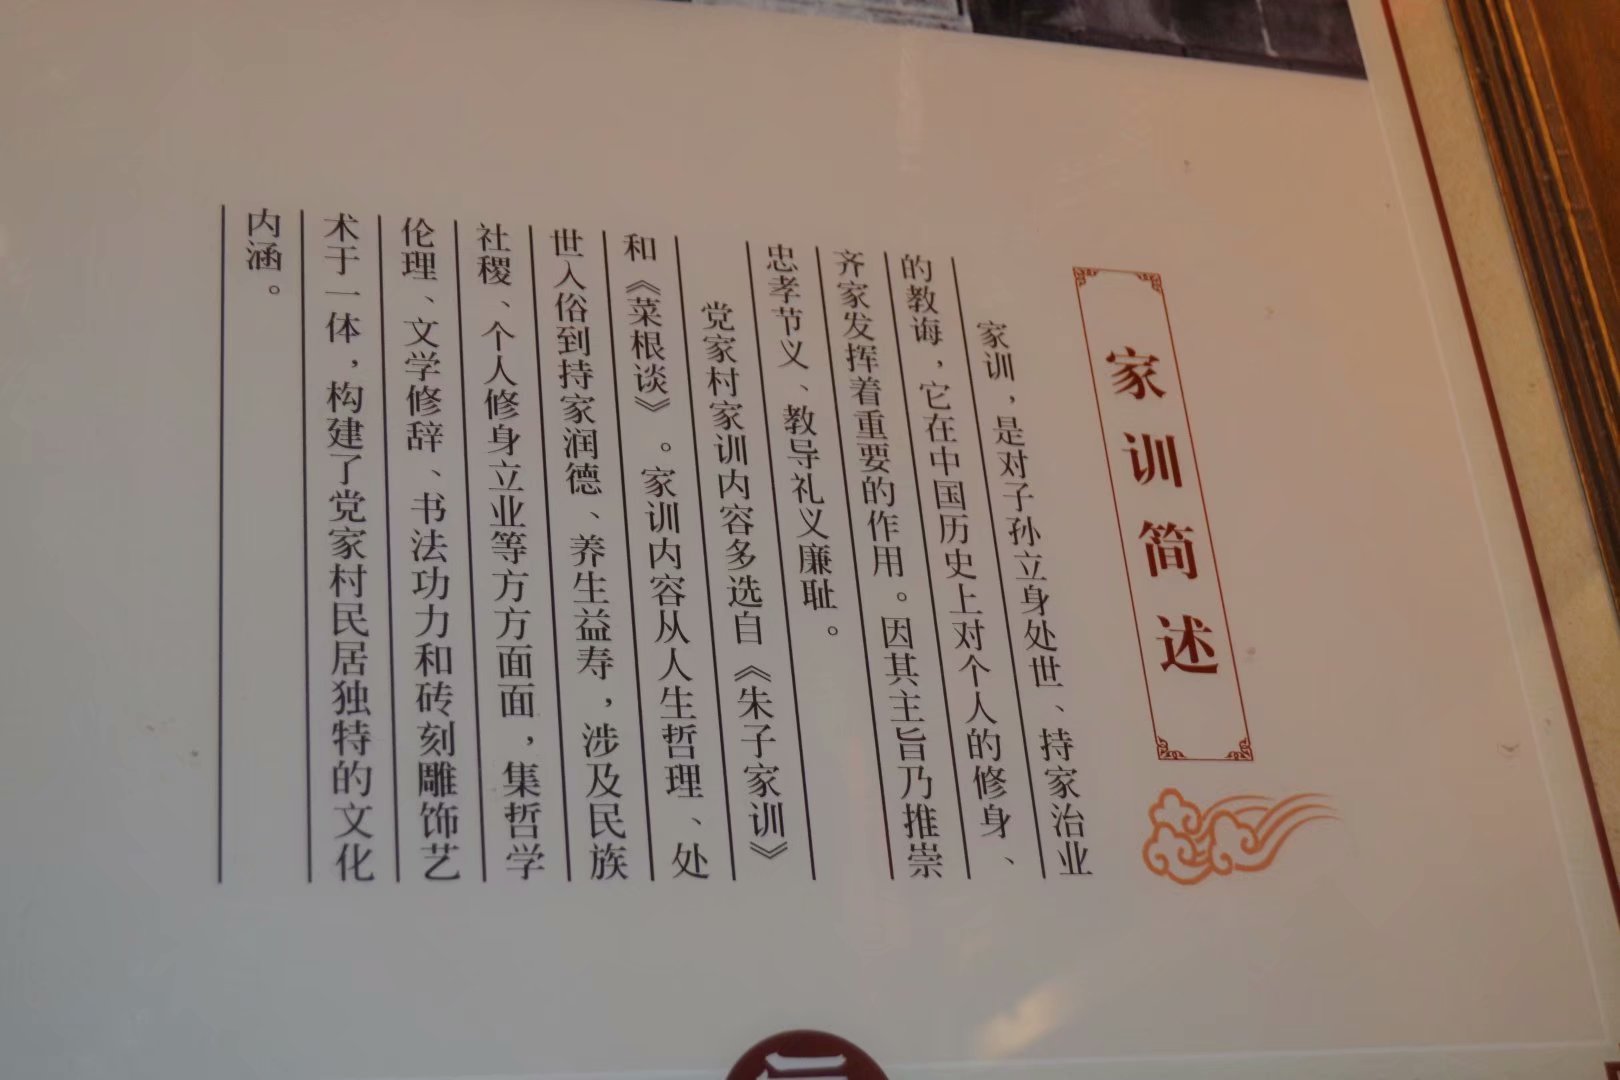 家训简述
家训，是对子孙立身处世、持家治业
的教诲，它在中国历史上对个人的修身、
齐家发挥着重要的作用。因其主旨乃推崇
忠孝节义、教导礼义廉耻。
党家村家训内容多选自《朱子家训》
和《菜根谈》。家训内容从人生哲理、处
世入俗到持家润德、养生益寿，涉及民族
社稷、个人修身立业等方方面面，集哲学
伦理、文学修辞、书法功力和砖刻雕饰艺
术于一体，构建了党家村民居独特的文化
内涵。